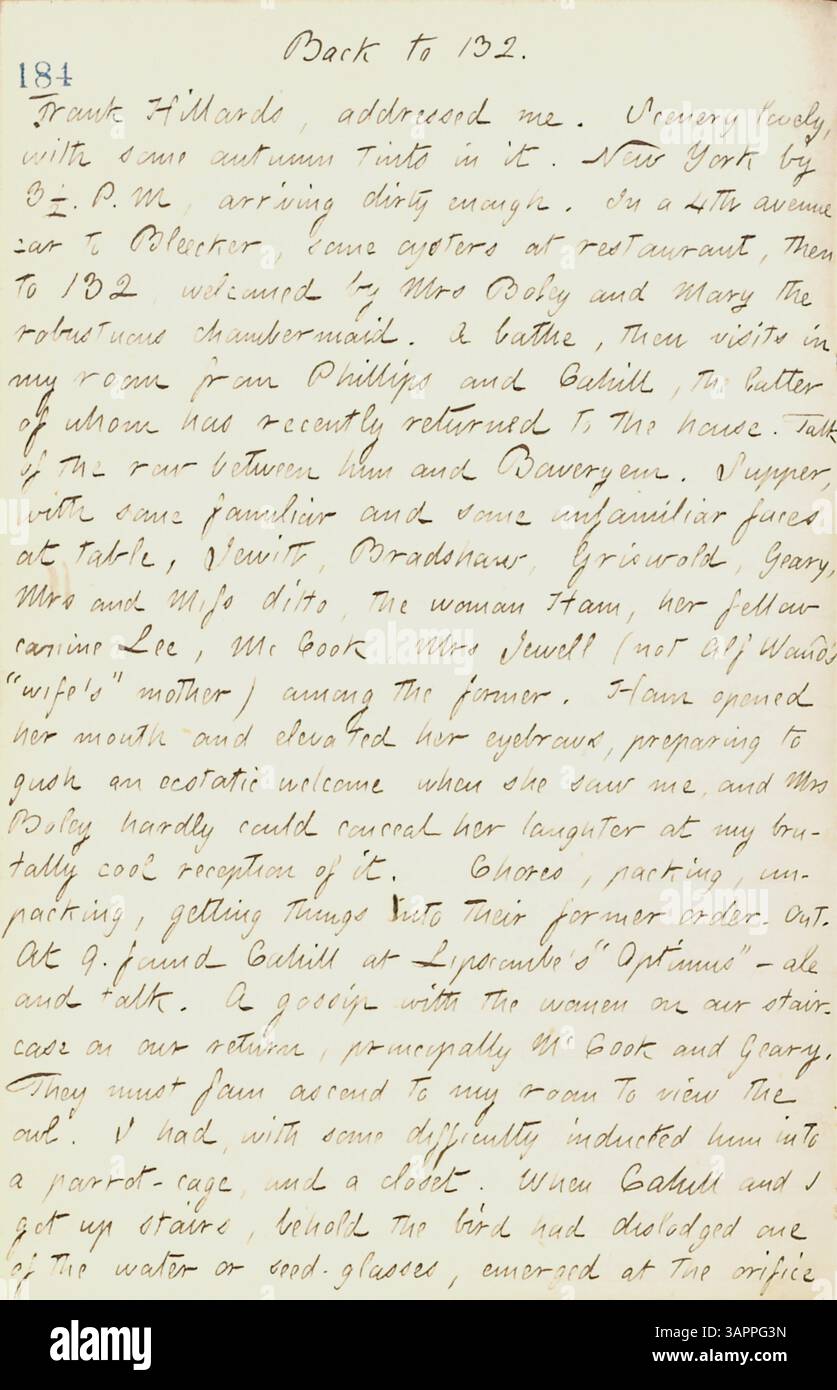 Back to 132.
184
Frank Hillards, addressed me. Scenery lovely,
with some autumn tints in it. New York by
3½. P.M, arriving dirty enough. In a 4th avenue
car to Bleecker, some oysters at restaurant, then
to 132, welcomed by Mrs Boley and Mary the
robustuous chambermaid. A bathe, then visits in
my room from Phillips and Cahill, the latter
of whom has recently returned to the house. Talk
of the row between him and Boweryem. Supper,
with some familiar and some unfamiliar faces
at table, Jewitt, Bradshaw, Griswold, Geary,
Mrs and Miss ditto, the woman Ham, her fellow
canine Lee, Mc Cook Mrs Jewell (not Alf Waud's
"wife's" mother) among the former. Ham opened
her mouth and elevated her eyebrows, preparing to
gush an ecstatic welcome when she saw me, and Mrs
Boley hardly could conceal her laughter at my bru-
tally cool reception of it. Chores, packing, un-
packing, getting things into their former order. Out.
At 9. found Cahill at Lipscombe's "Optimus" - ale
and talk. A gossip with the women on our stair-
case on our return, principally Mc Cook and Geary.
They must fain ascend to my room to view the
owl. I had, with some difficulty inducted him into
a parrot-cage, and a closet. When Cahill and I
got up stairs, behold the bird had dislodged one
of the water or seed-glasses, emerged at the orifice
alamy
Image ID: 3APPG3N
www.alamy.com